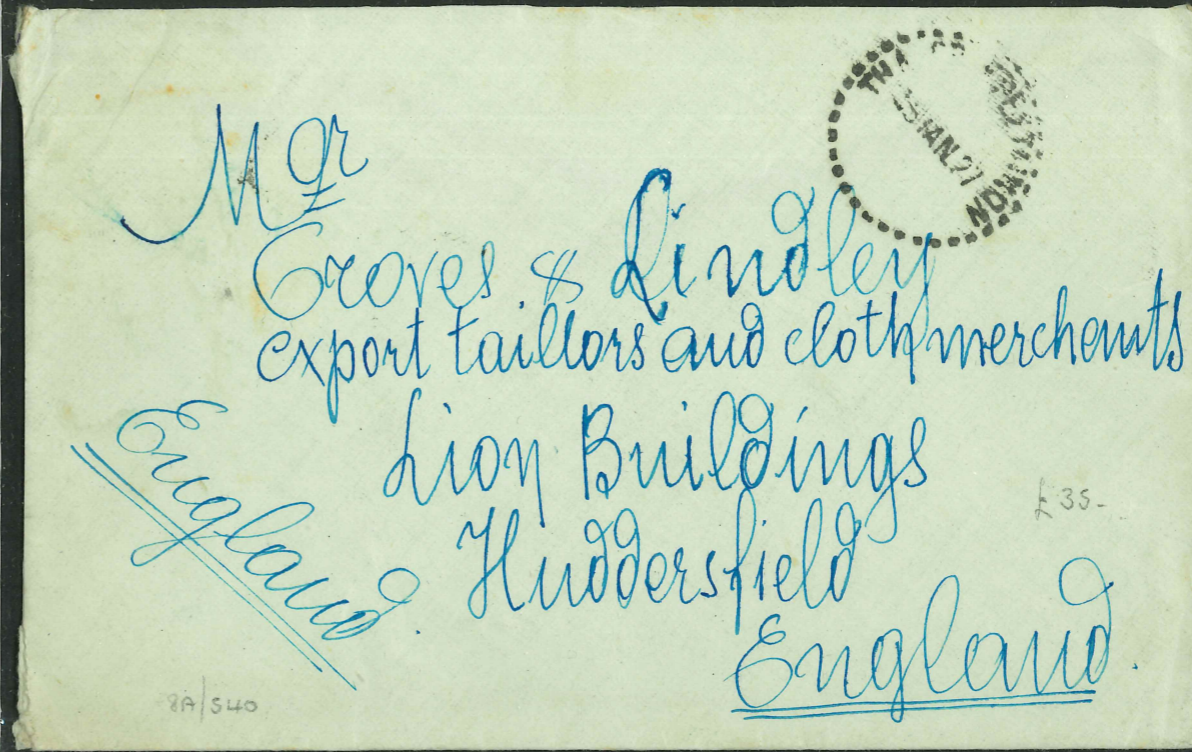 Mgr
Groves & Lindley
export taillors and cloth merchants
Lion Buildings
Huddersfield
England
England.
£35-
8A/540
JAN.27